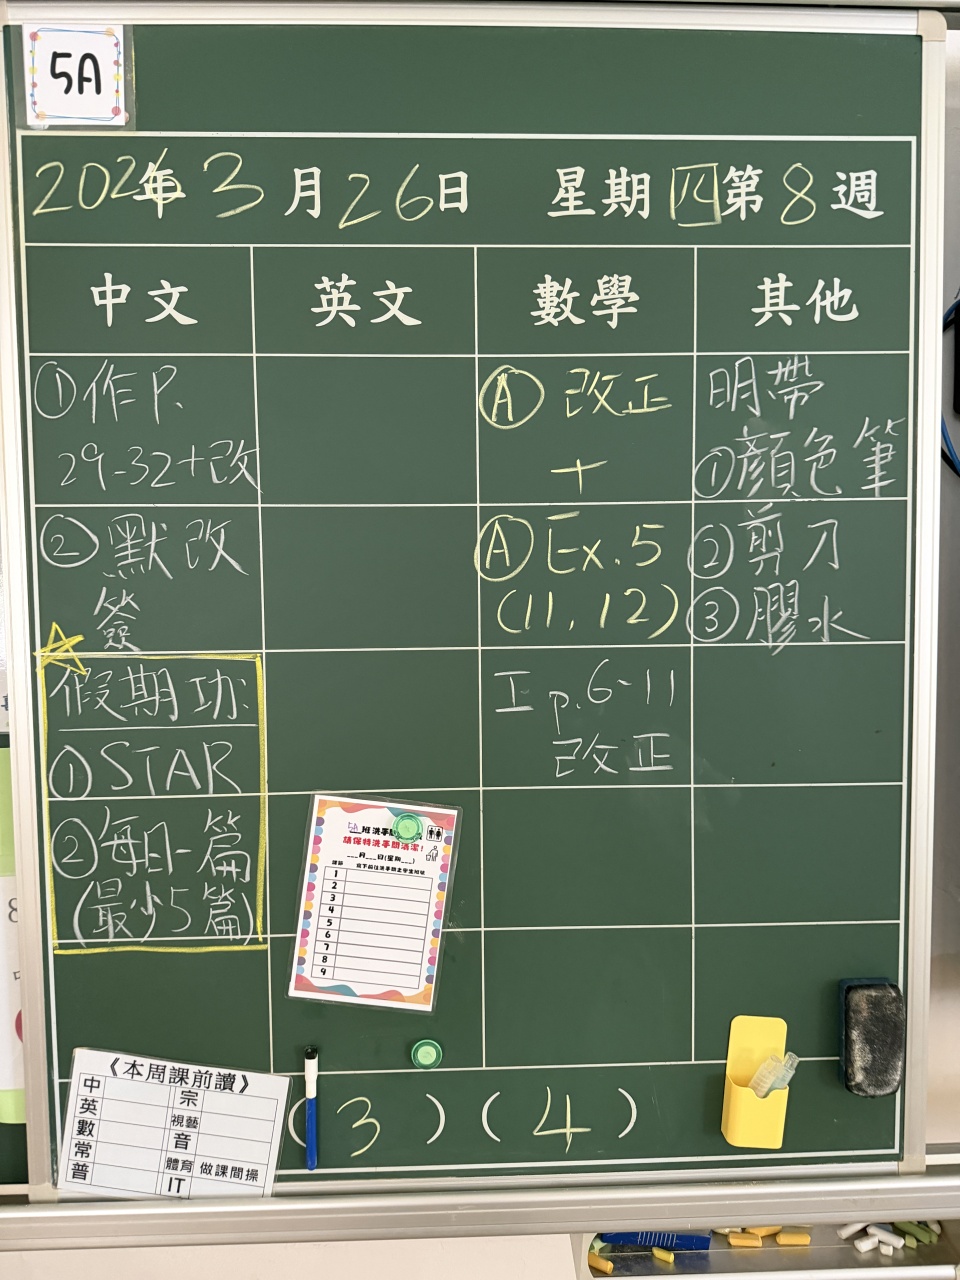 5A
2026年3月26日 星期四第8週
中文 英文 數學 其他
①作P.
29-32+改
②默改
簽
假期功:
①STAR
②每日一篇
(最少5篇)
Ⓐ 改正
+
Ⓐ Ex.5
(11, 12)
工 p.6-11
改正
明帶
①顏色筆
②剪刀
③膠水
5A班洗手間
請保持洗手間清潔!
___月___日(星期___)
1
2
3
4
5
6
7
8
9
《本周課前讀》
中 宗
英 視藝
數 音
常 體育 做課間操
普 IT
(3) (4)